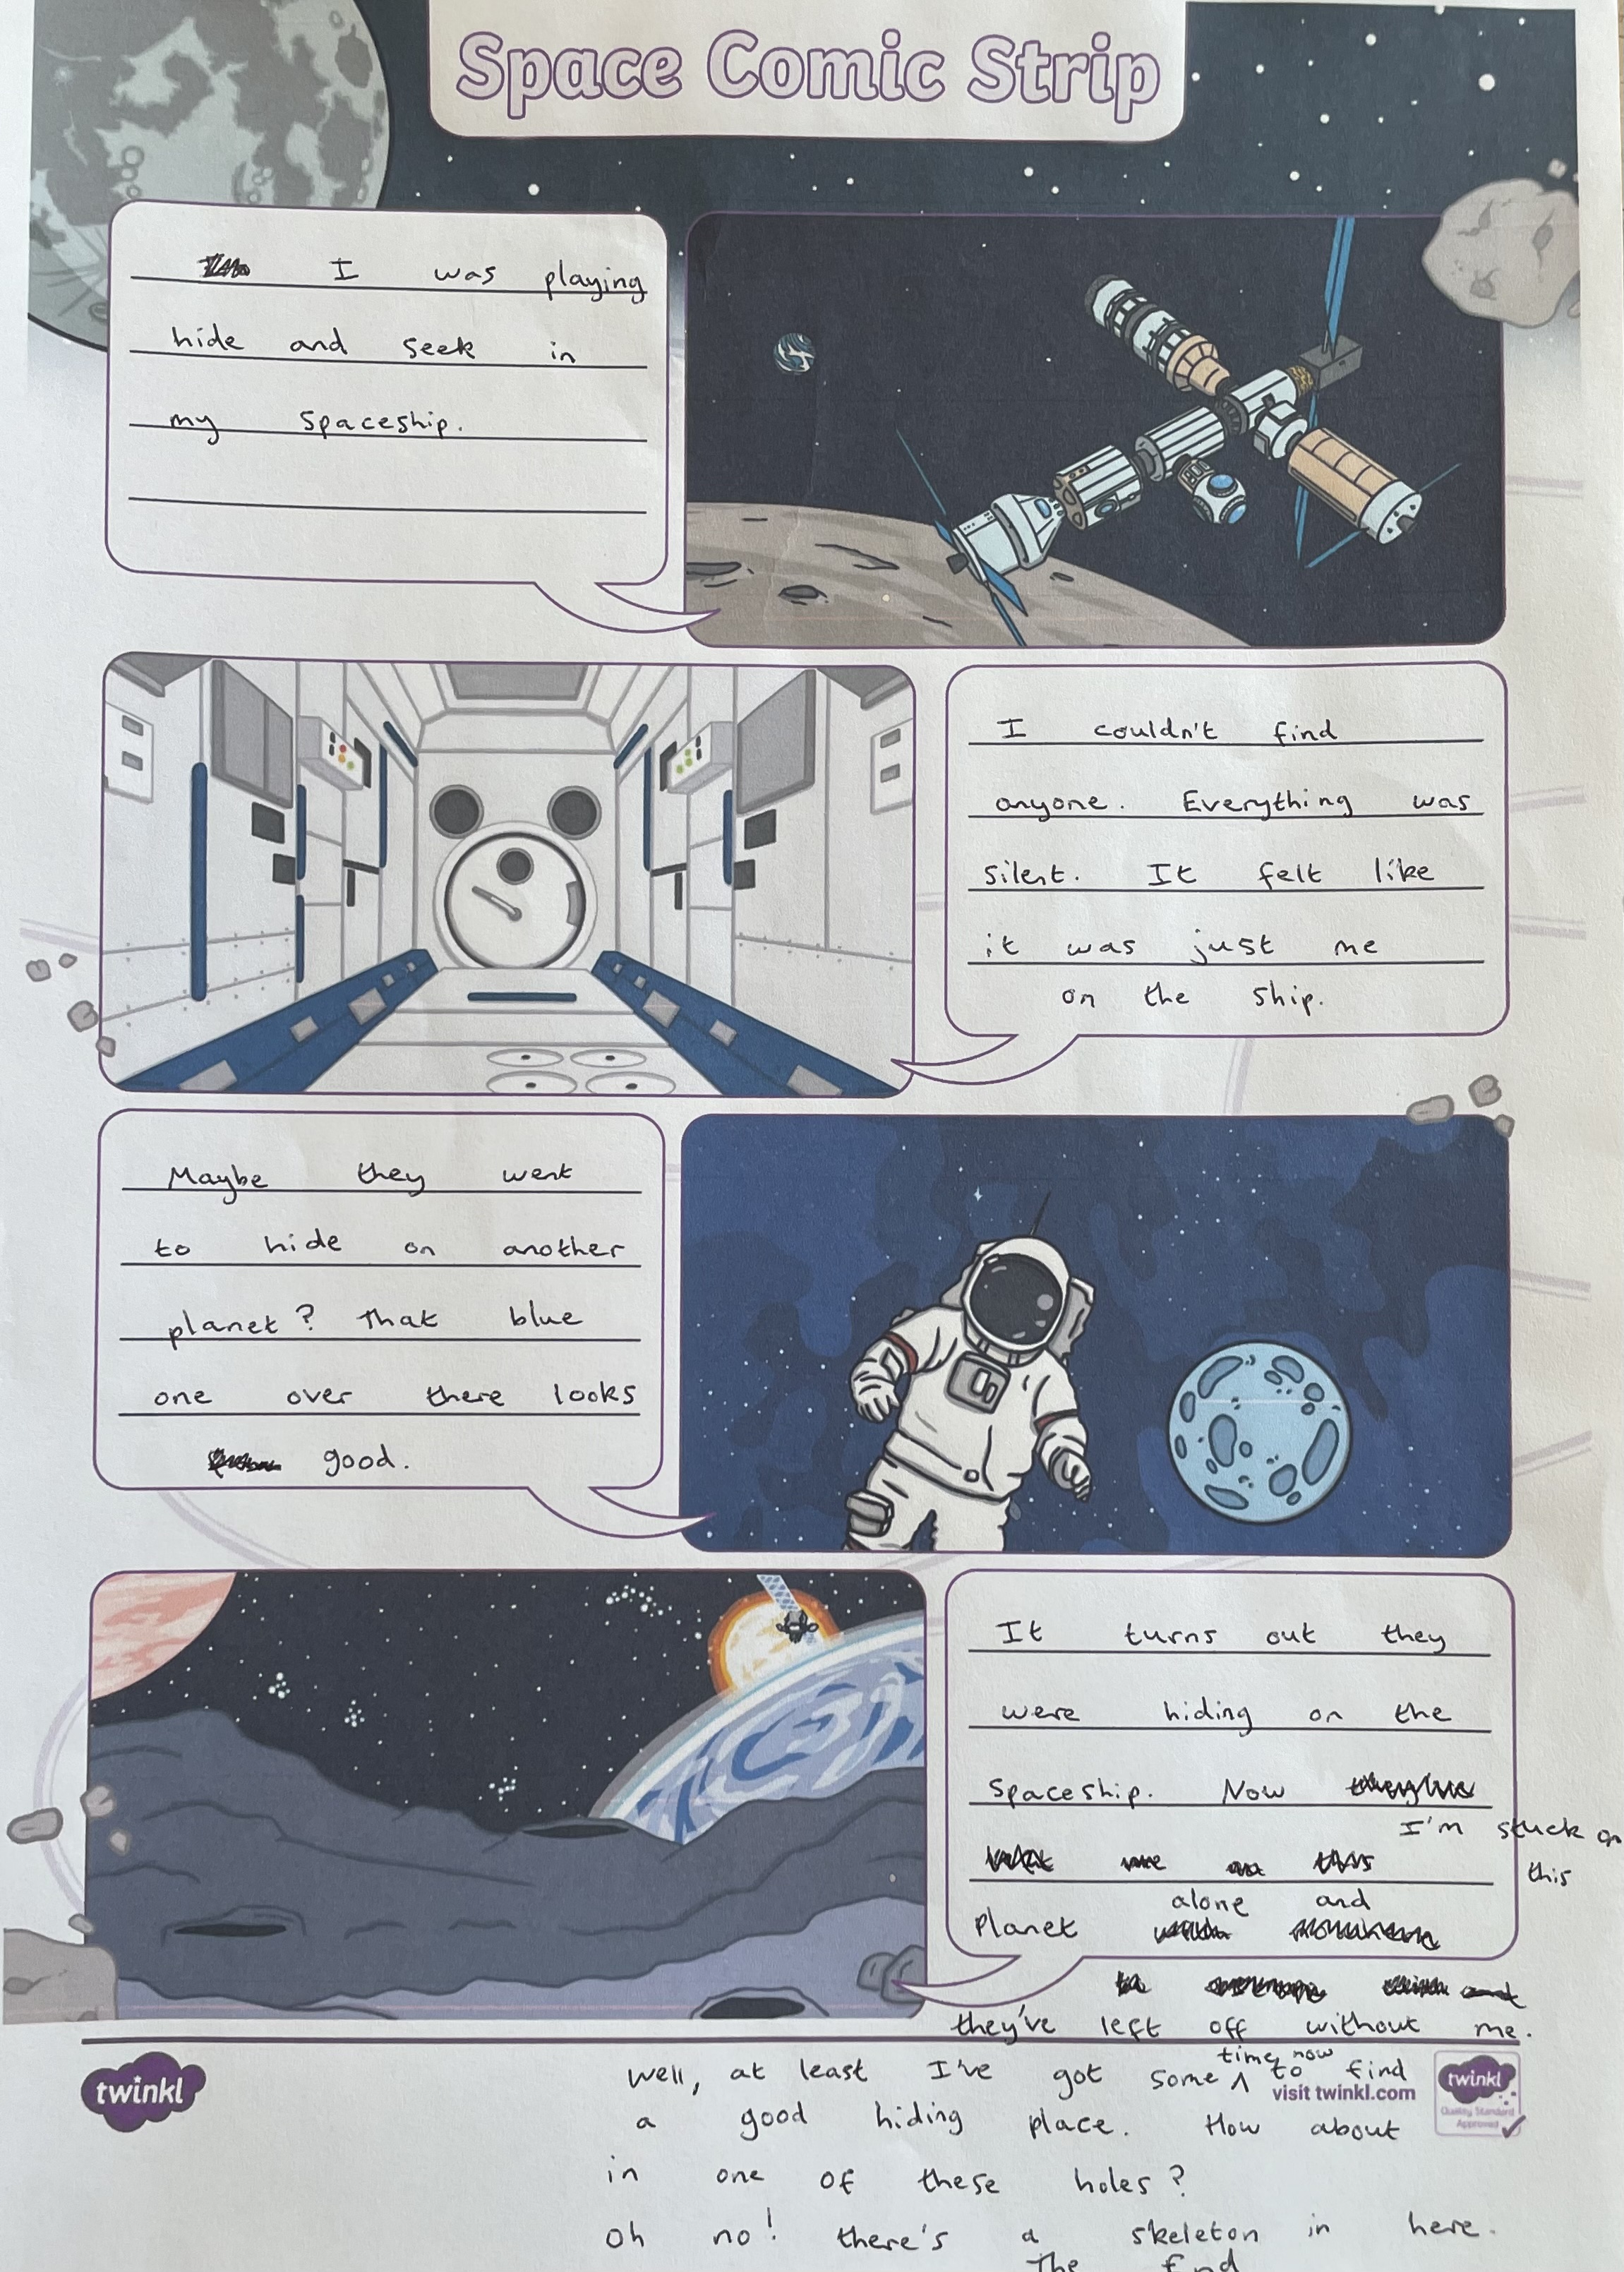 Space Comic Strip
I was playing
hide and seek in
my spaceship.
I couldn't find
anyone. Everything was
silent. It felt like
it was just me
on the ship.
Maybe they went
to hide on another
planet? That blue
one over there looks
good.
It turns out they
were hiding on the
spaceship. Now
I'm stuck on
this
planet alone and
they've left off without me.
Well, at least I've got some time now to find
a good hiding place. How about
in one of these holes?
Oh no! there's a skeleton in here.
The End
twinkl
visit twinkl.com
twinkl
Quality Standard
Approved